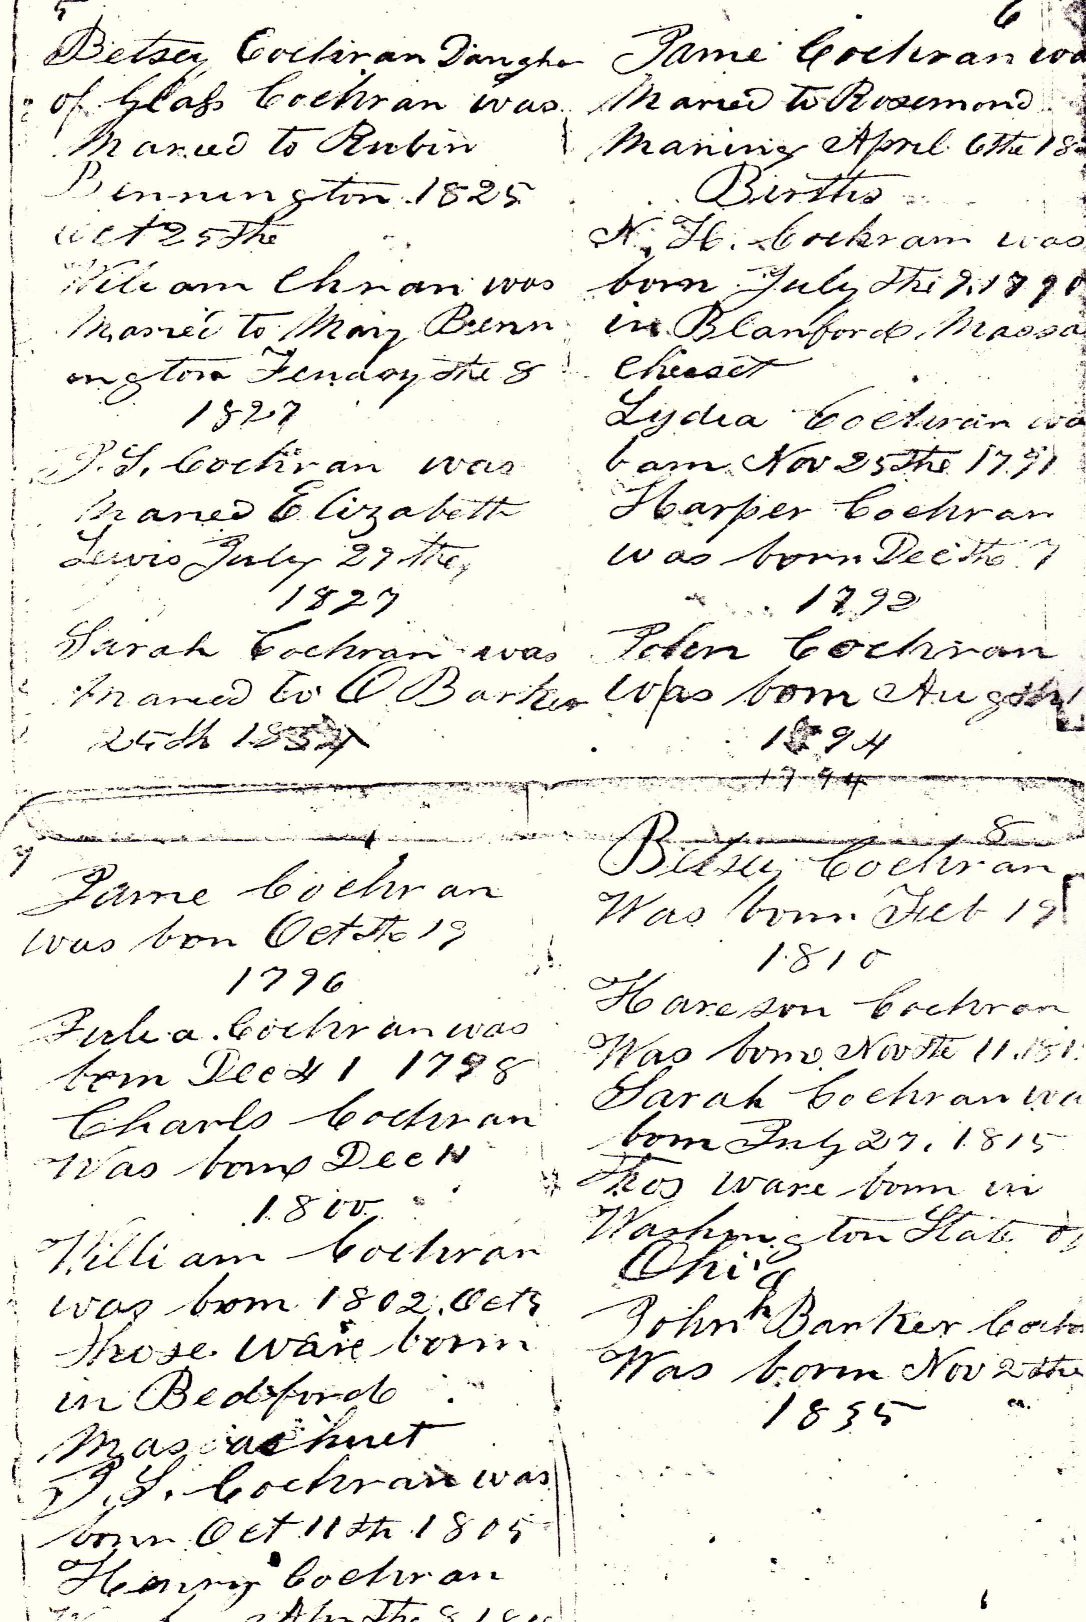 5
Betsey Cochran Daughter
of Glass Cochran was
Maried to Rubin
Bennington 1825
Oct 25 the
William Chran was
Maried to Mary Benn
ington the 8
1827
P. S. Cochran was
Maried Elizabeth
Lewis July 29 the,
1827
Sarah Cochran was
Maried to O Barker
25th
6
Jame Cochran was
Maried to Rosemond
Maning April 6the
Births
N. H. Cochran was
born July the 9, 1790
in Blanford, Massa
Lydia Cochran wa
born Nov 25the 1791
Harper Cochran
was born Dec the 7
1792
John Cochran
Was born Aug
1894
1794
7
Jame Cochran
was bon Oct the 19
1796
Julia Cochran was
born Dec 1 1798
Charls Cochran
Was born Dec 11
1800
William Cochran
was born 1802, Oct 5
those ware born
in Bedford
P. S. Cochran was
born Oct 11th 1805
Henry Cochran
8
Betsey Cochran
Was born Feb 19
1810
Hareson Cochran
Was born Nov the 11, 181
Sarah Cochran wa
born July 27, 1815
ware born in
Washington State of
Ohio
John Barker Coch
Was born Nov
1835